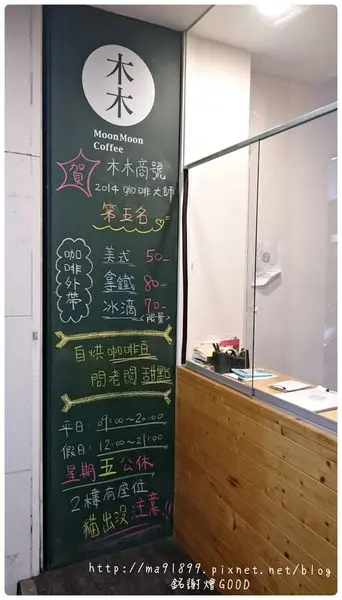 木
木
MoonMoon
Coffee
賀 木木商號
2014 咖啡大師
第五名
咖啡外帶
美式 50-
拿鐵 80-
冰滴 70-
(限量)
自烘咖啡豆
問老闆 甜點
平日: 09:00~20:00
假日: 12:00~21:00
星期五公休
2樓有座位
貓出沒注意!!
http://ma91899.pixnet.net/blog
銘謝燴GOOD